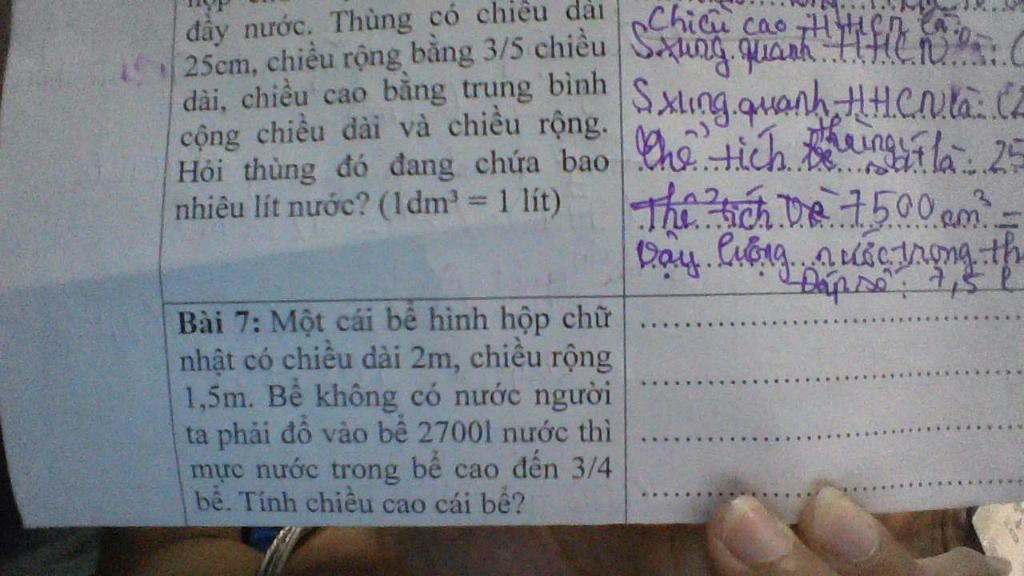 đầy nước. Thùng có chiều dài
25cm, chiều rộng bằng 3/5 chiều
dài, chiều cao bằng trung bình
cộng chiều dài và chiều rộng.
Hỏi thùng đó đang chứa bao
nhiêu lít nước? (1dm³ = 1 lít)
Chiều cao HHCN là:
S xung quanh HHCN
S xung quanh HHCN là: (2
Thể tích thùng là: 25
Thể tích 7500cm³ =
Vậy lượng nước trong th
Đáp số: 7,5 l
Bài 7: Một cái bể hình hộp chữ
nhật có chiều dài 2m, chiều rộng
1,5m. Bể không có nước người
ta phải đổ vào bể 2700l nước thì
mực nước trong bể cao đến 3/4
bể. Tính chiều cao cái bể?